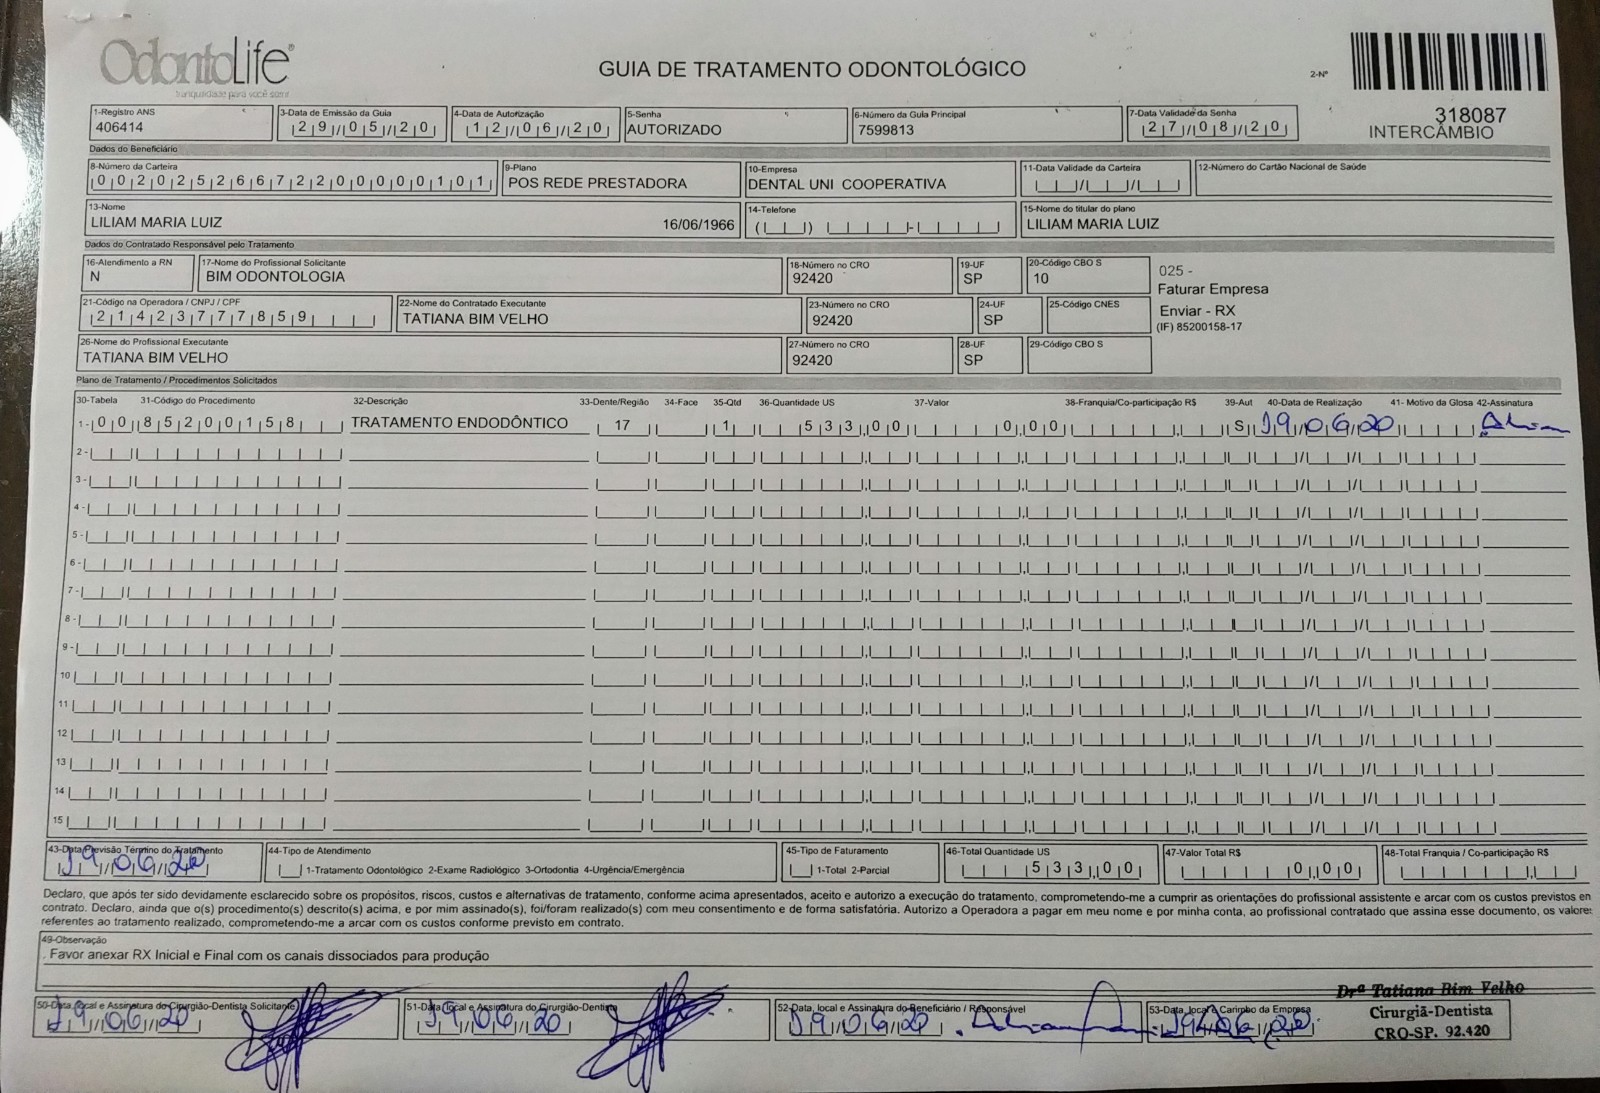 OdontoLife®
tranquilidade para você sorrir
GUIA DE TRATAMENTO ODONTOLÓGICO
2-Nº
318087
INTERCÂMBIO
1-Registro ANS
406414
3-Data de Emissão da Guia
29/05/20
4-Data de Autorização
12/06/20
5-Senha
AUTORIZADO
6-Número da Guia Principal
7599813
7-Data Validade da Senha
27/08/20
Dados do Beneficiário
8-Número da Carteira
00202526672200000101
9-Plano
POS REDE PRESTADORA
10-Empresa
DENTAL UNI COOPERATIVA
11-Data Validade da Carteira
12-Número do Cartão Nacional de Saúde
13-Nome
LILIAM MARIA LUIZ 16/06/1966
14-Telefone
15-Nome do titular do plano
LILIAM MARIA LUIZ
Dados do Contratado Responsável pelo Tratamento
16-Atendimento a RN
N
17-Nome do Profissional Solicitante
BIM ODONTOLOGIA
18-Número no CRO
92420
19-UF
SP
20-Código CBO S
10
025 -
Faturar Empresa
Enviar - RX
(IF) 85200158-17
21-Código na Operadora / CNPJ / CPF
21423777859
22-Nome do Contratado Executante
TATIANA BIM VELHO
23-Número no CRO
92420
24-UF
SP
25-Código CNES
26-Nome do Profissional Executante
TATIANA BIM VELHO
27-Número no CRO
92420
28-UF
SP
29-Código CBO S
Plano de Tratamento / Procedimentos Solicitados
30-Tabela 31-Código do Procedimento 32-Descrição 33-Dente/Região 34-Face 35-Qtd 36-Quantidade US 37-Valor 38-Franquia/Co-participação R$ 39-Aut 40-Data de Realização 41- Motivo da Glosa 42-Assinatura
1- 00 85200158 TRATAMENTO ENDODÔNTICO 17 1 533,00 0,00 S 19/06/20
2-
3-
4-
5-
6-
7-
8-
9-
10
11
12
13
14
15
43-Data Previsão Término do Tratamento
19/06/20
44-Tipo de Atendimento
1-Tratamento Odontológico 2-Exame Radiológico 3-Ortodontia 4-Urgência/Emergência
45-Tipo de Faturamento
1-Total 2-Parcial
46-Total Quantidade US
533,00
47-Valor Total R$
0,00
48-Total Franquia / Co-participação R$
Declaro, que após ter sido devidamente esclarecido sobre os propósitos, riscos, custos e alternativas de tratamento, conforme acima apresentados, aceito e autorizo a execução do tratamento, comprometendo-me a cumprir as orientações do profissional assistente e arcar com os custos previstos em
contrato. Declaro, ainda que o(s) procedimento(s) descrito(s) acima, e por mim assinado(s), foi/foram realizado(s) com meu consentimento e de forma satisfatória. Autorizo a Operadora a pagar em meu nome e por minha conta, ao profissional contratado que assina esse documento, os valores
referentes ao tratamento realizado, comprometendo-me a arcar com os custos conforme previsto em contrato.
49-Observação
. Favor anexar RX Inicial e Final com os canais dissociados para produção
50-Data, local e Assinatura do Cirurgião-Dentista Solicitante
19/06/20
51-Data, local e Assinatura do Cirurgião-Dentista
19/06/20
52-Data, local e Assinatura do Beneficiário / Responsável
19/06/20
53-Data, local e Carimbo da Empresa
19/06/20
Drª Tatiana Bim Velho
Cirurgiã-Dentista
CRO-SP. 92.420